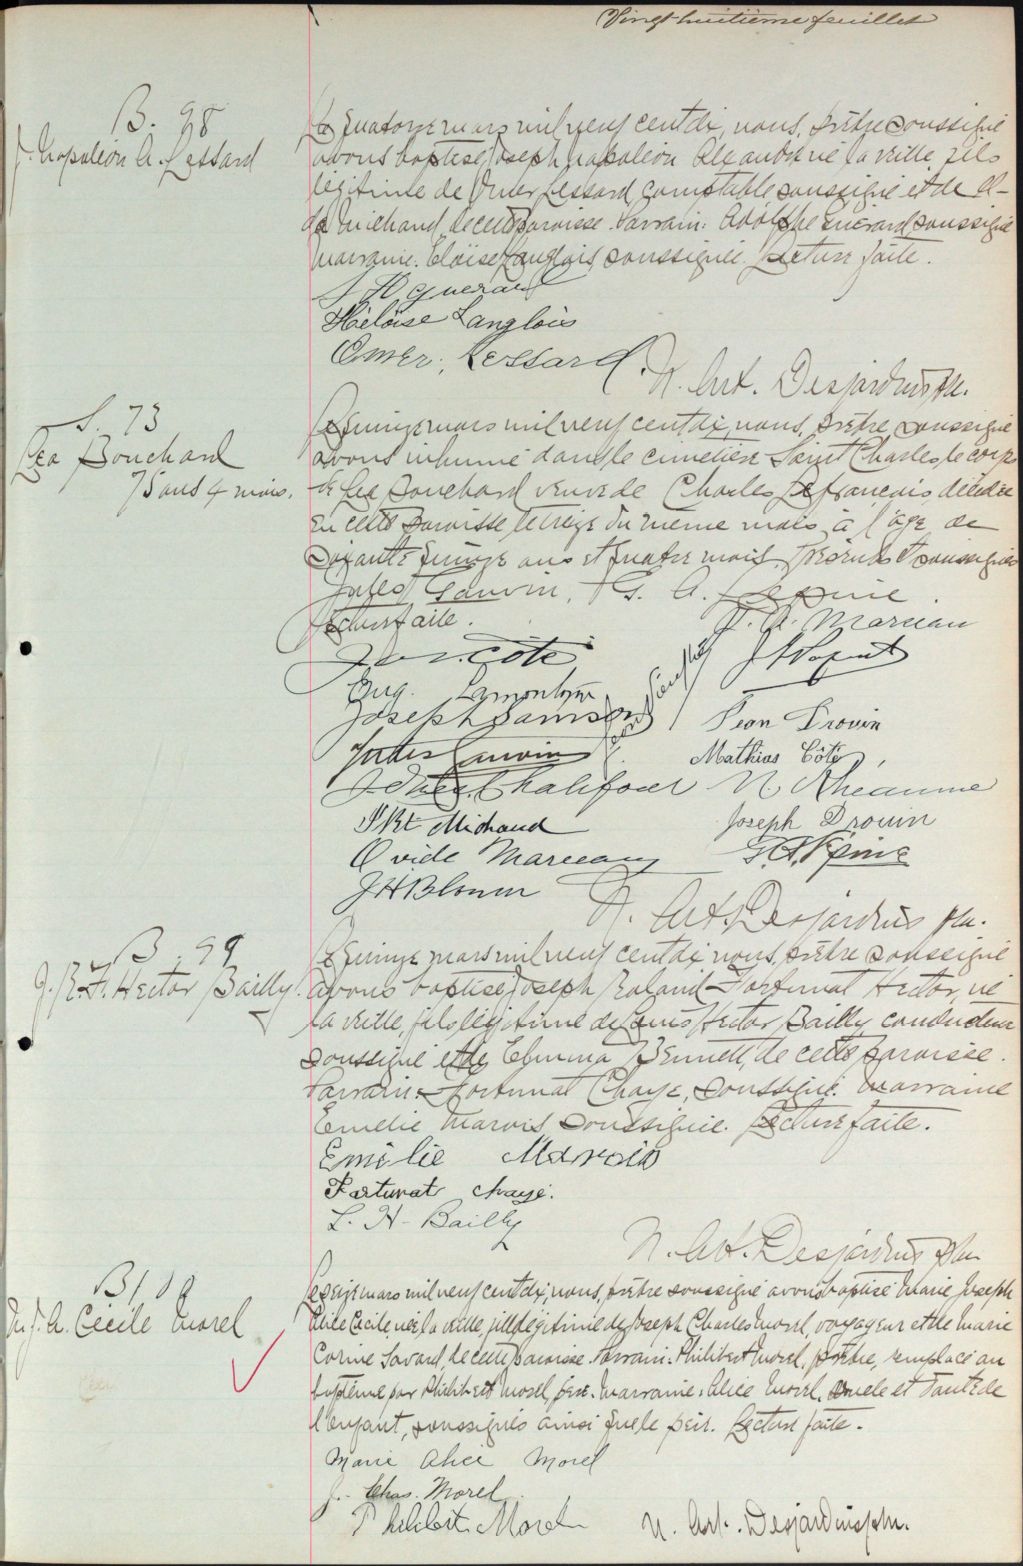 Vingt-huitième feuillet
B. 98
J. Napoléon A. Lessard
Le quatorze mars mil neuf cent dix, nous, prêtre soussigné
avons baptisé Joseph Napoléon Alexandre né la veille, fils
légitime de Omer Lessard, constable soussigné et de Al-
da Michaud, de cette paroisse. Parrain: Adolphe Guérard soussigné
marraine: Eloïse Langlois, soussignée. Lecture faite.
Guerard
Héloïse Langlois
Omer. Lessard.
N. Art. Desjardins ptr.
S. 73
Léa Bouchard
75 ans 4 mois.
Le quinze mars mil neuf cent dix, nous, prêtre soussigné
avons inhumé dans le cimetière Saint Charles, le corps
de Léa Bouchard veuve de Charles Lefrançois décédée
en cette paroisse le treize du même mois, à l'âge de
soixante quinze ans et quatre mois. Présents et soussignés
Jules Gauvin, G. A. Lépine.
Lecture faite.
J. A. Marceau
Côté
Eug. Lamontagne
Joseph Samson
Jean Drouin
Jules Gauvin
Mathias Côté,
Chalifour
N. Rheaume
Michaud
Joseph Drouin
Ovide Marceau
G. A. Lépine
J H Blouin
N. Art. Desjardins ptr.
B. 99
J. R. F. Hector Bailly.
Le quinze mars mil neuf cent dix nous, prêtre soussigné
avons baptisé Joseph Roland Fortunat Hector, né
la veille, fils légitime de Louis Hector Bailly, conducteur
soussigné et de Elmina Bennett, de cette paroisse.
Parrain: Fortunat Chayé, soussigné. Marraine
Emélie Marois soussignée. Lecture faite.
Emélie Marois
Fortunat Chayé.
L. H. Bailly
N. Art. Desjardins ptr
B 100
M. J. A. Cécile Morel
Le seize mars mil neuf cent dix, nous, prêtre soussigné avons baptisé Marie Joseph
Alice Cécile, née la veille, fille légitime de Joseph Charles Morel, voyageur et de Marie
Corine Savard, de cette paroisse. Parrain: Philibert Morel, prêtre, remplacé au
baptême par Philibert Morel, père. Marraine: Alice Morel, oncle et tante de
l'enfant, soussignés ainsi que le père. Lecture faite.
Marie Alice Morel
J. Chas. Morel
Philibert Morel
N. Art. Desjardins ptr.